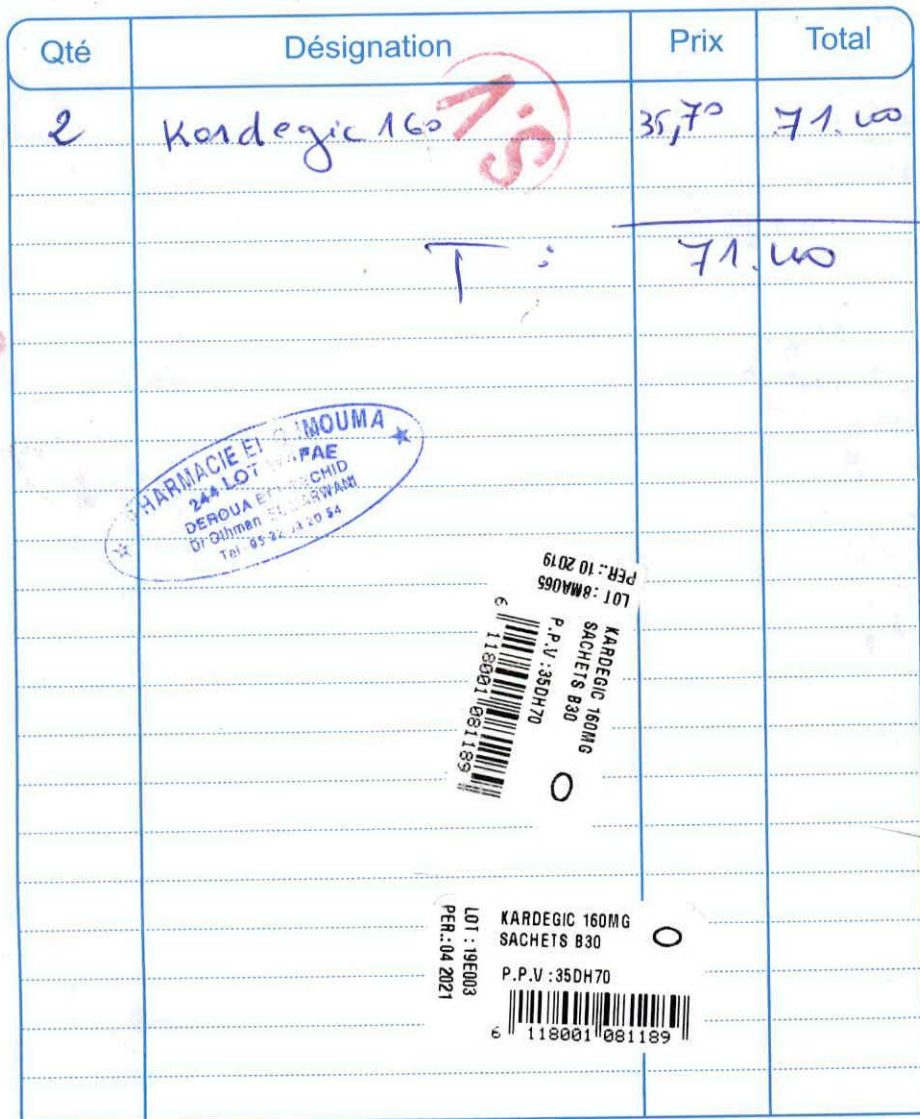 Qté Désignation Prix Total
2 Kardegic 160 35,70 71.40
T : 71.40
PHARMACIE
244 LOT WAFAE
DEROUA
Dr Othman
Tel: 05 22
LOT : 8MA065
PER.: 10 2019
KARDEGIC 160MG
SACHETS B30
P.P.V :35DH70
6 118001 081189
LOT : 19E003
PER.: 04 2021
KARDEGIC 160MG
SACHETS B30
P.P.V :35DH70
6 118001 081189